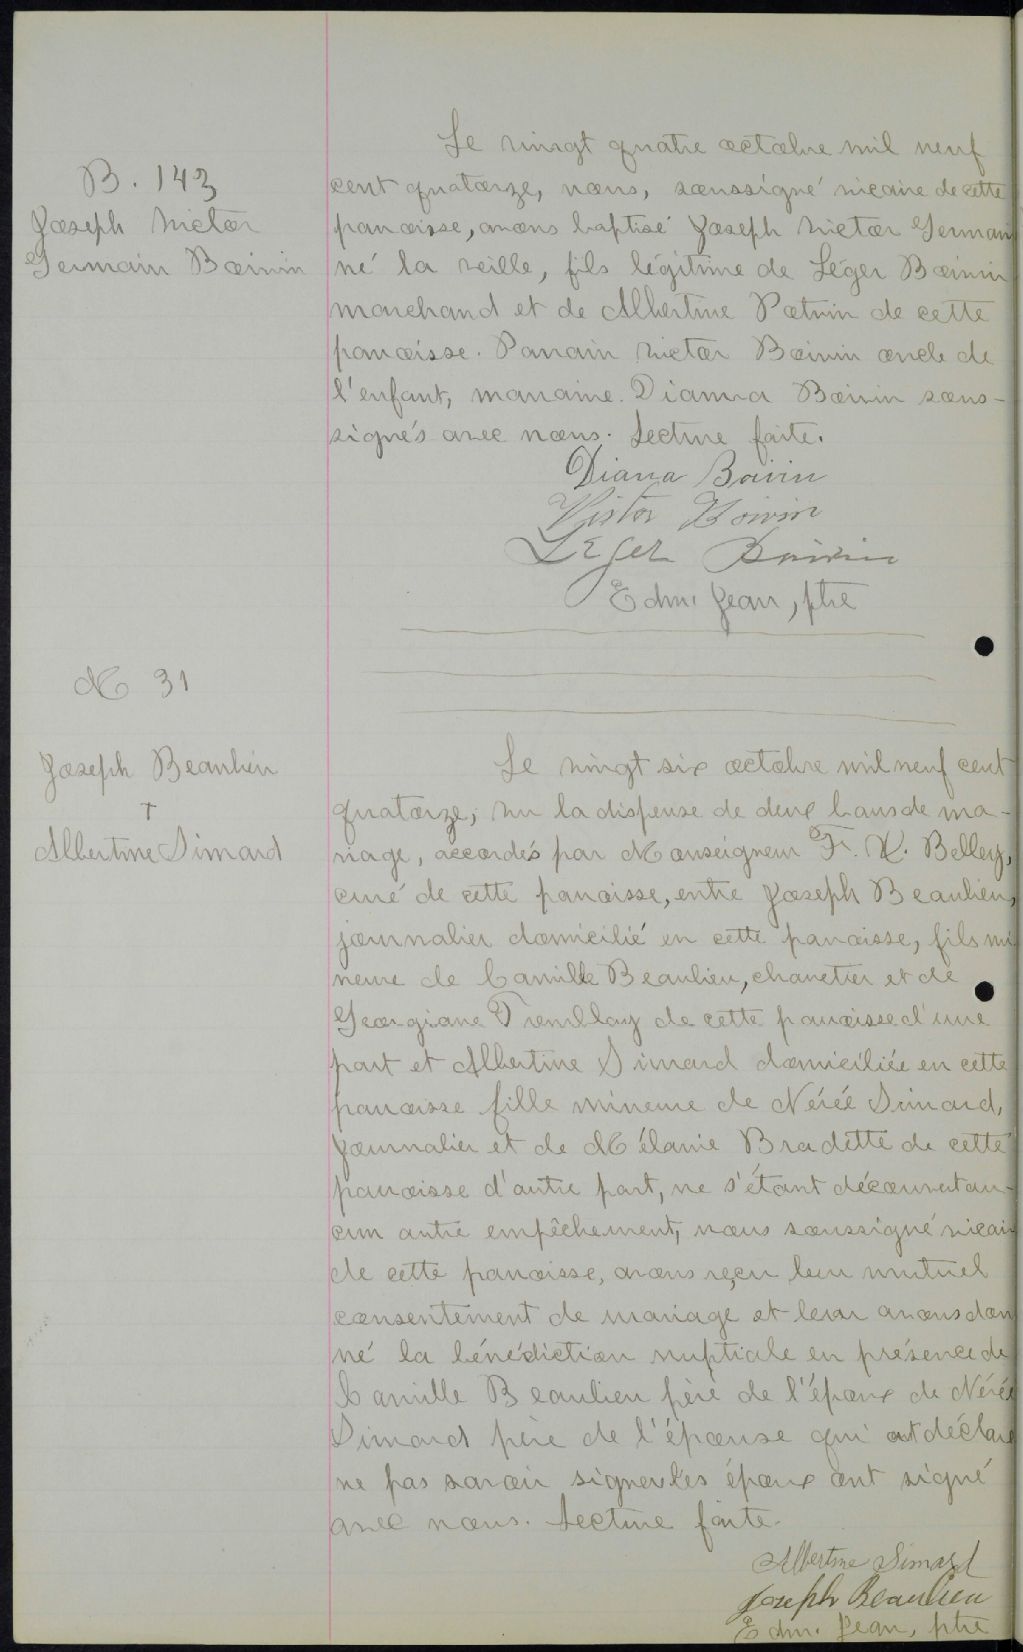 B. 143
Joseph Victor
Germain Boivin
Le vingt quatre octobre mil neuf
cent quatorze, nous, soussigné vicaire de cette
paroisse, avons baptisé Joseph Victor Germain
né la veille, fils légitime de Léger Boivin
marchand et de Albertine Potvin de cette
paroisse. Parrain Victor Boivin oncle de
l'enfant, marraine. Dianna Boivin sous-
signés avec nous. Lecture faite.
Diana Boivin
Victor Boivin
Léger Boivin
Edm. Jean, ptre
M 31
Joseph Beaulieu
+
Albertine Simard
Le vingt six octobre mil neuf cent
quatorze, vu la dispense de deux bans de ma-
riage, accordés par Monseigneur Fr. X. Belley,
curé de cette paroisse, entre Joseph Beaulieu,
journalier domicilié en cette paroisse, fils mi
neur de Camille Beaulieu, charretier et de
Georgiane Tremblay de cette paroisse d'une
part et Albertine Simard domiciliée en cette
paroisse fille mineure de Nérée Simard,
journalier et de Mélanie Bradette de cette
paroisse d'autre part, ne s'étant découvert au-
cun autre empêchement, nous soussigné vicair
de cette paroisse, avons reçu leur mutuel
consentement de mariage et leur avons don
né la bénédiction nuptiale en présence de
Camille Beaulieu père de l'époux de Nérée
Simard père de l'épouse qui ont déclaré
ne pas savoir signer les époux ont signé
avec nous. Lecture faite.
Albertine Simard
Joseph Beaulieu
Edm. Jean, ptre